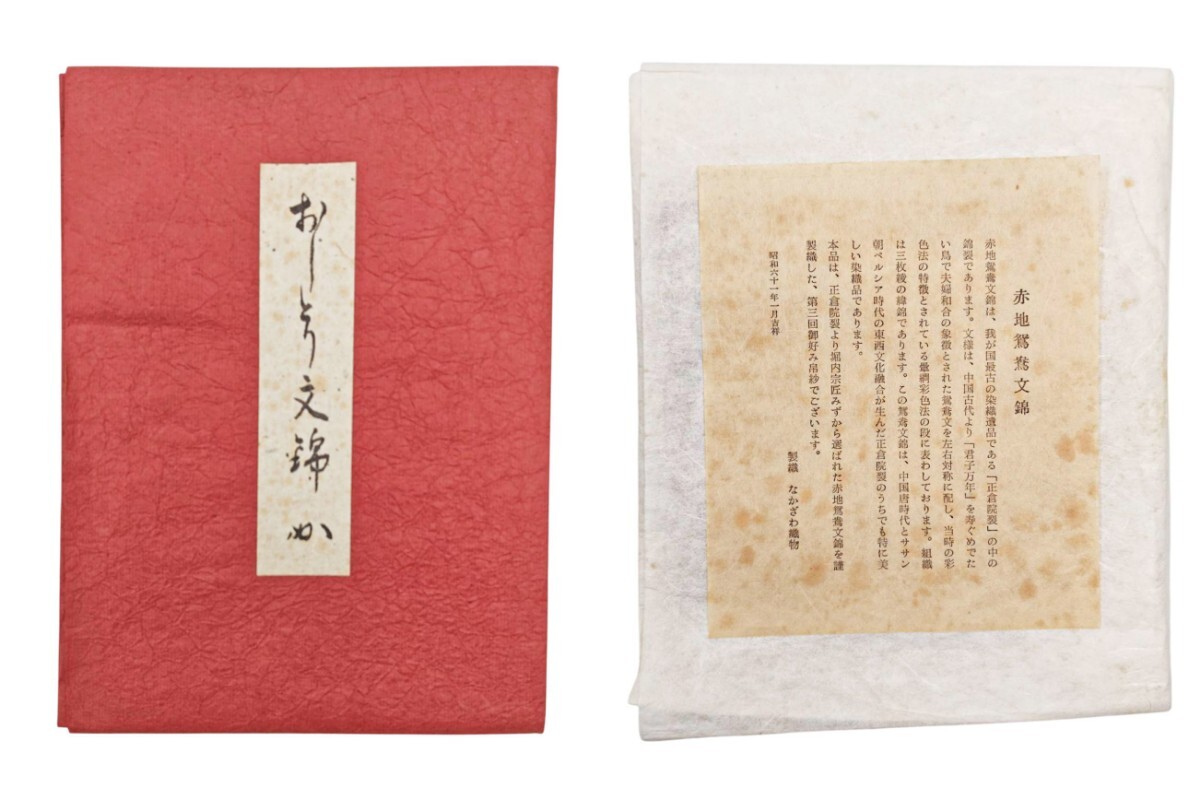 おしとり文錦
赤地鴛鴦文錦
赤地鴛鴦文錦は、我が国最古の染織遺品である「正倉院裂」の中の
錦裂であります。文様は、中国古代より「君子万年」を寿ぐめでた
い鳥で夫婦和合の象徴とされた鴛鴦文を左右対称に配し、当時の彩
色法の特徴とされている暈繝彩色法の段に表わしております。組織
は三枚綾の緯錦であります。この鴛鴦文錦は、中国唐時代とササン
朝ペルシア時代の東西文化融合が生んだ正倉院裂のうちでも特に美
しい染織品であります。
本品は、正倉院裂より堀内宗匠みずから選ばれた赤地鴛鴦文錦を謹
製織した、第三回御好み帛紗でございます。
製織 なかざわ織物
昭和六十一年一月吉祥